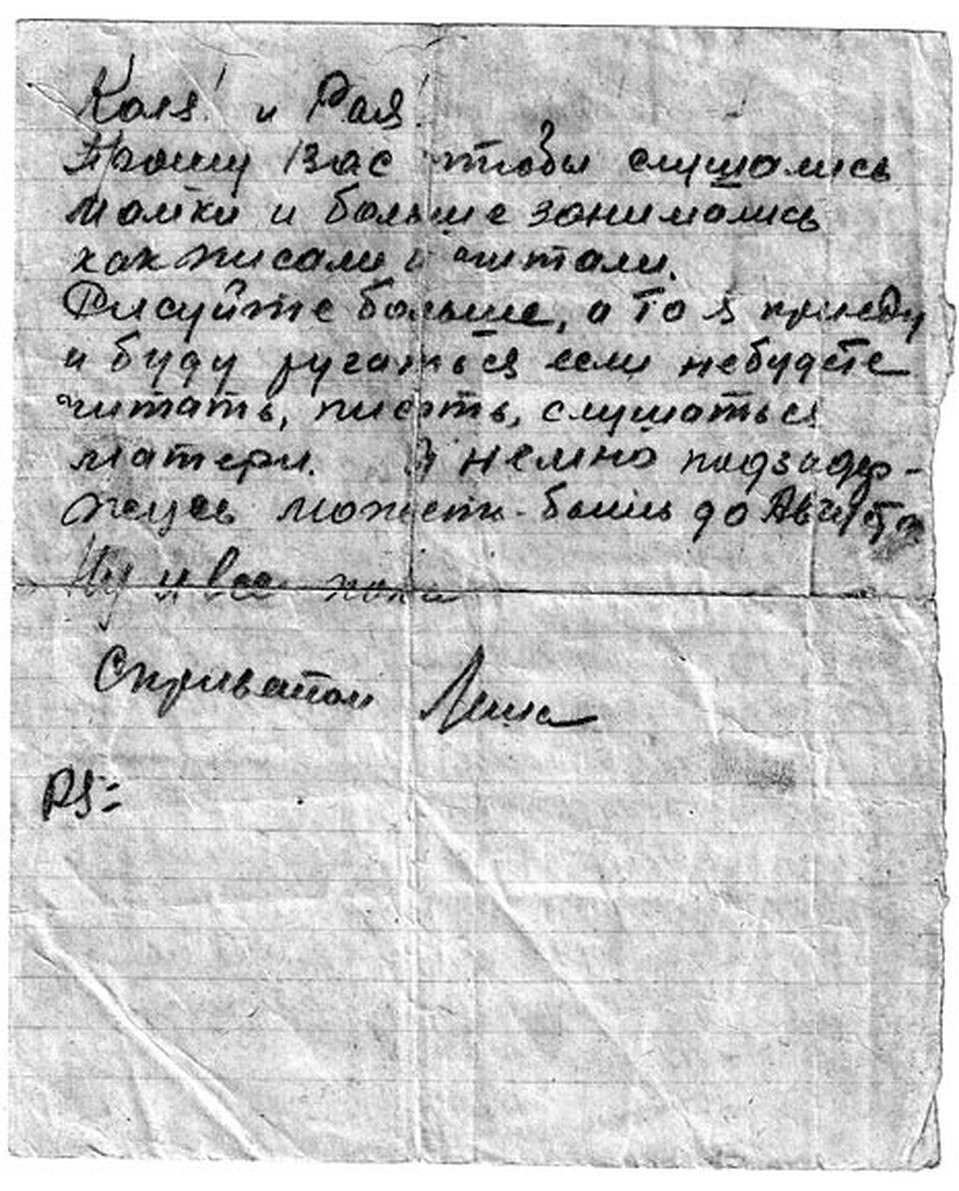 Коля! и Рая!
Прошу Вас чтобы слушались
мамки и больше занимались
как писали и читали.
Рисуйте больше, а то я приеду
и буду ругаться если небудете
читать, писать, слушаться
матери. Я немно подзадер-
жусь может быть до Августа
Ну и все пока
Сприватом
PS=